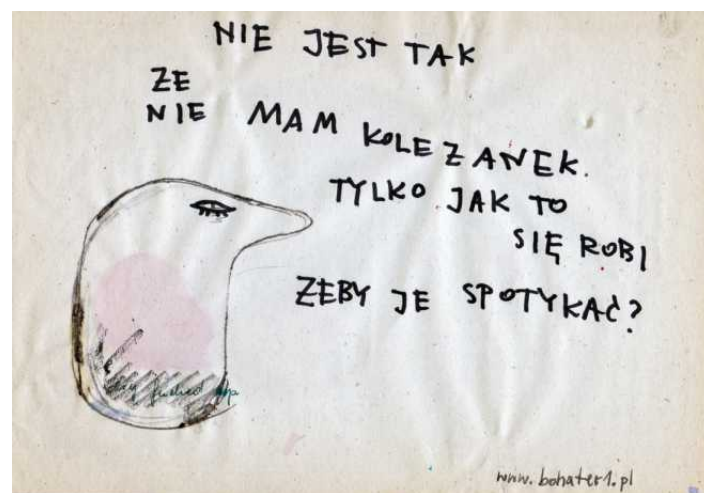 NIE JEST TAK
ZE
NIE MAM KOLEZANEK.
TYLKO JAK TO
SIĘ ROBI
ZEBY JE SPOTYKAĆ?
fucked up
www.bohater1.pl